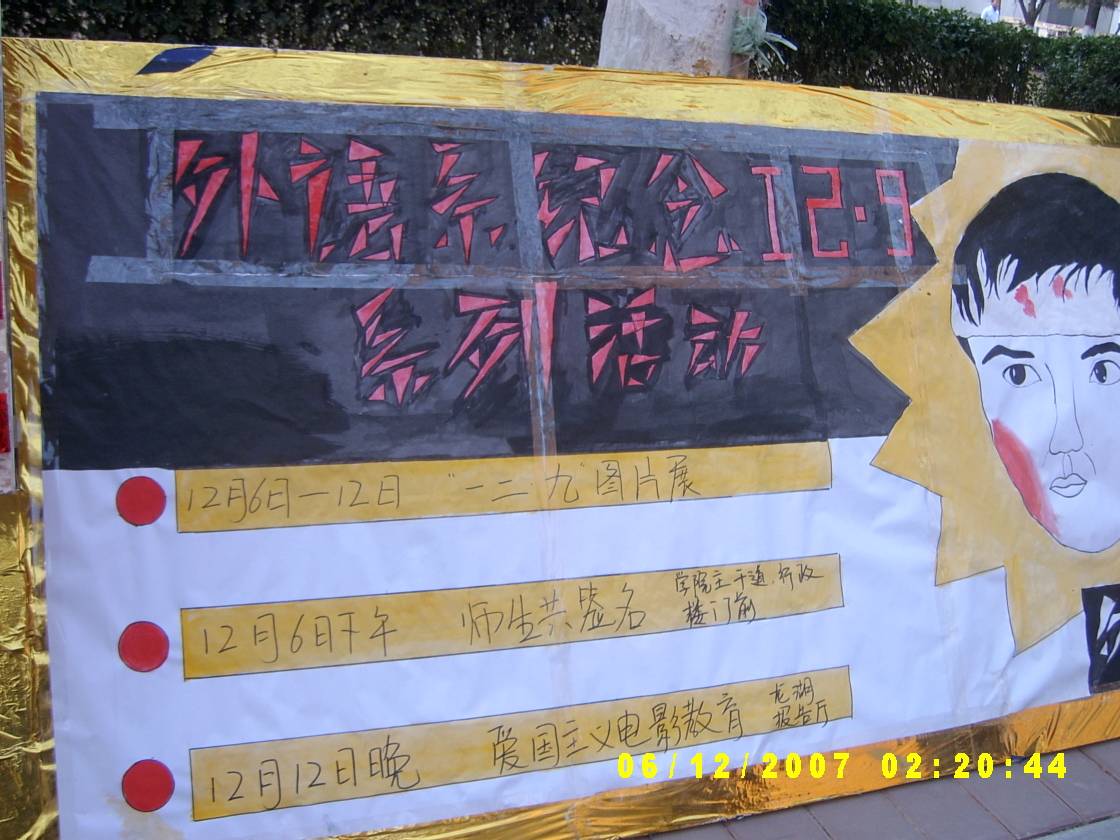 外语系纪念12·9
系列活动
12月6日—12日 "一二·九"图片展
12月6日下午 师生共签名 学院主干道、行政
楼门前
12月12日晚 爱国主义电影教育 龙湖
报告厅
06/12/2007 02:20:44